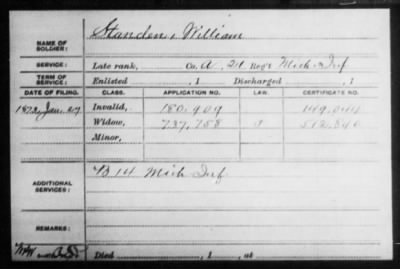 Standen, William
NAME OF SOLDIER:
SERVICE: Late rank, Co. A, 21 Reg't Mich. Inf
TERM OF SERVICE: Enlisted , 1 Discharged , 1
DATE OF FILING. CLASS. APPLICATION NO. LAW. CERTIFICATE NO.
1872, Jan. 27 Invalid, 180.909
Widow, 737.758
Minor,
ADDITIONAL SERVICES: B 14 Mich Inf
REMARKS:
Died , 1 , at